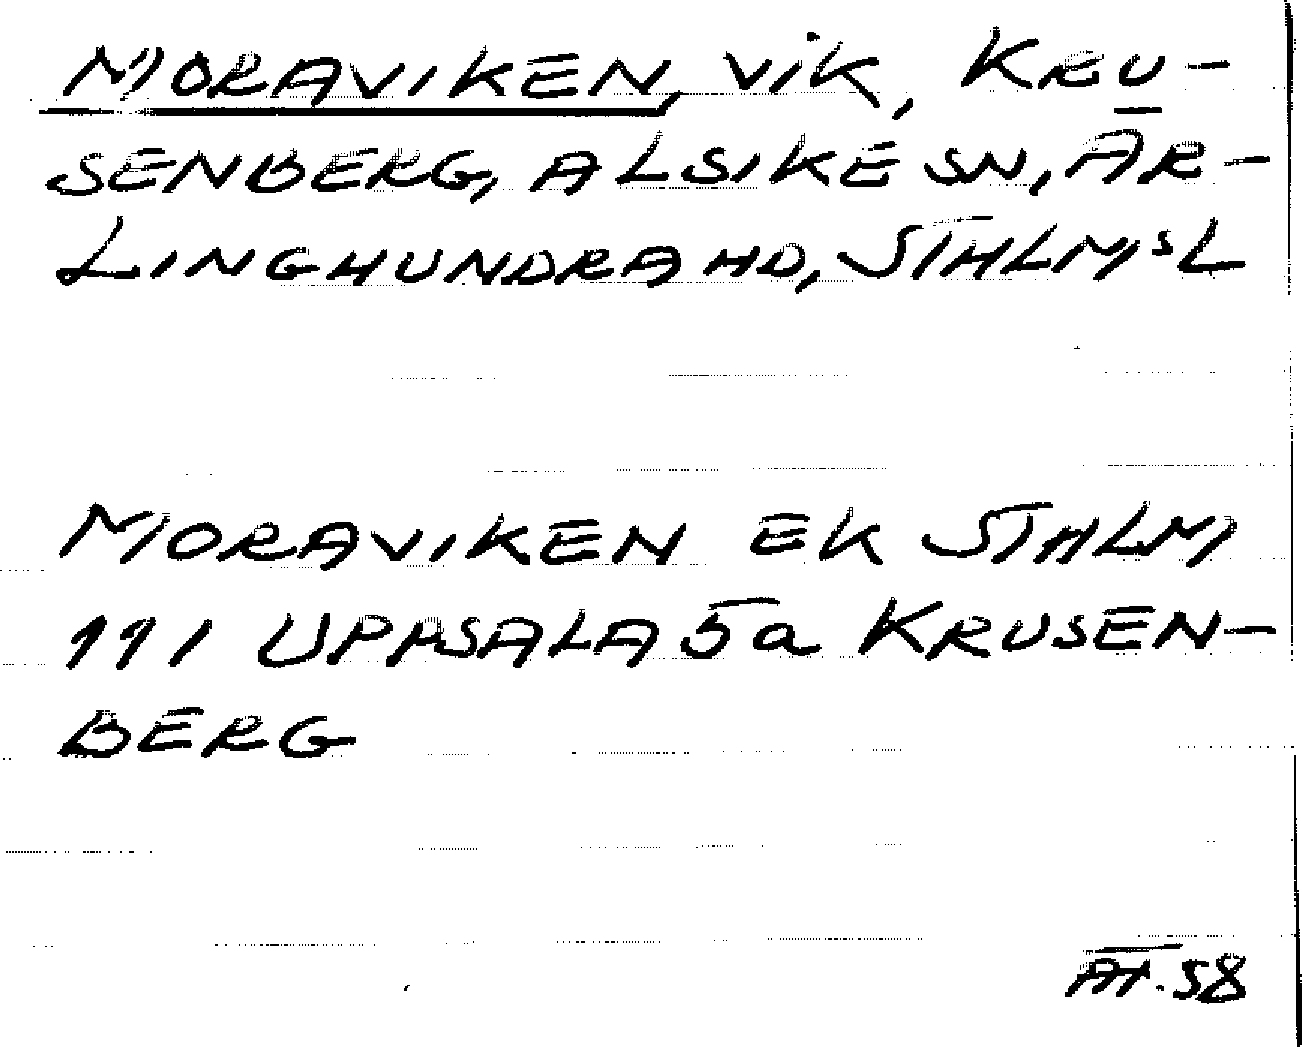 MORAVIKEN, VIK, KRU-
SENBERG, ALSIKE SN, ÄR-
LINGHUNDRA HD, STHLMSL
MORAVIKEN EK STHLM
111 UPPSALA 5a KRUSEN-
BERG
AT. 58